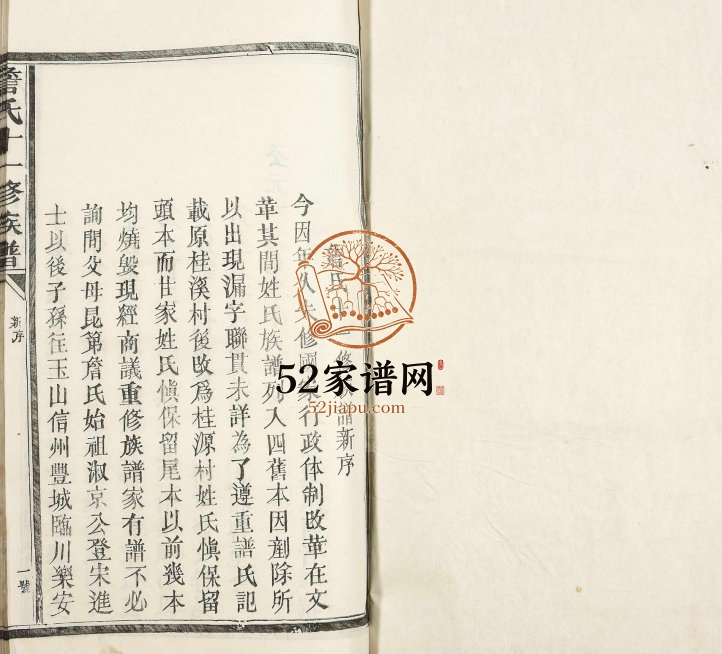 詹氏十一修族譜新序
今因年久未修國家行政体制改革在文
革其間姓氏族譜列入四舊本因剷除所
以出現漏字聯貫未詳為了遵重譜氏記
載原桂溪村後改爲桂源村姓氏愼保留
頭本而廿家姓氏愼保留尾本以前幾本
均燒毀現經商議重修族譜家有譜不必
詢問父母昆第詹氏始祖淑京公登宋進
士以後子孫在玉山信州豐城臨川樂安
詹氏十一修族譜
新序
一號
52家谱网
52jiapu.com